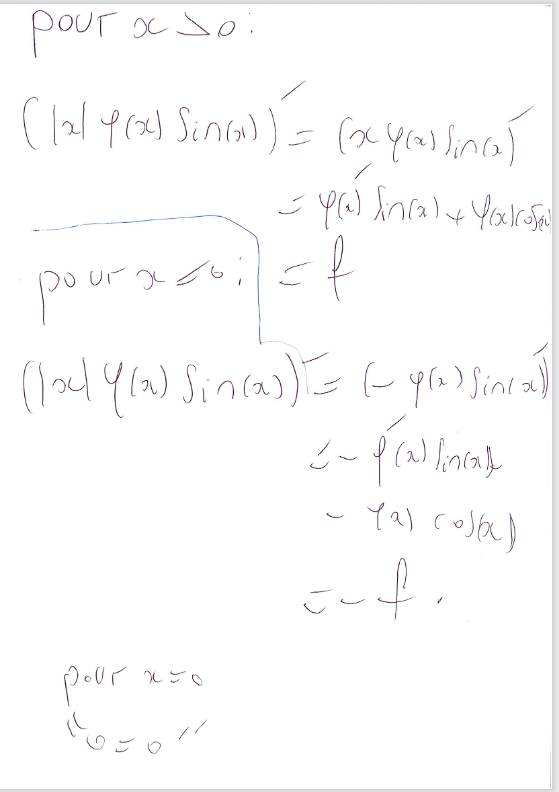 pour x > 0 :
(|x| φ(x) sin(x))' = (x φ(x) sin(x))'
= φ'(x) sin(x) + φ(x) cos(x)
= f
pour x ≤ 0 :
(|x| φ(x) sin(x))' = (- φ(x) sin(x))'
= - φ'(x) sin(x)
- φ(x) cos(x)
= - f .
pour x = 0
"0 = 0"